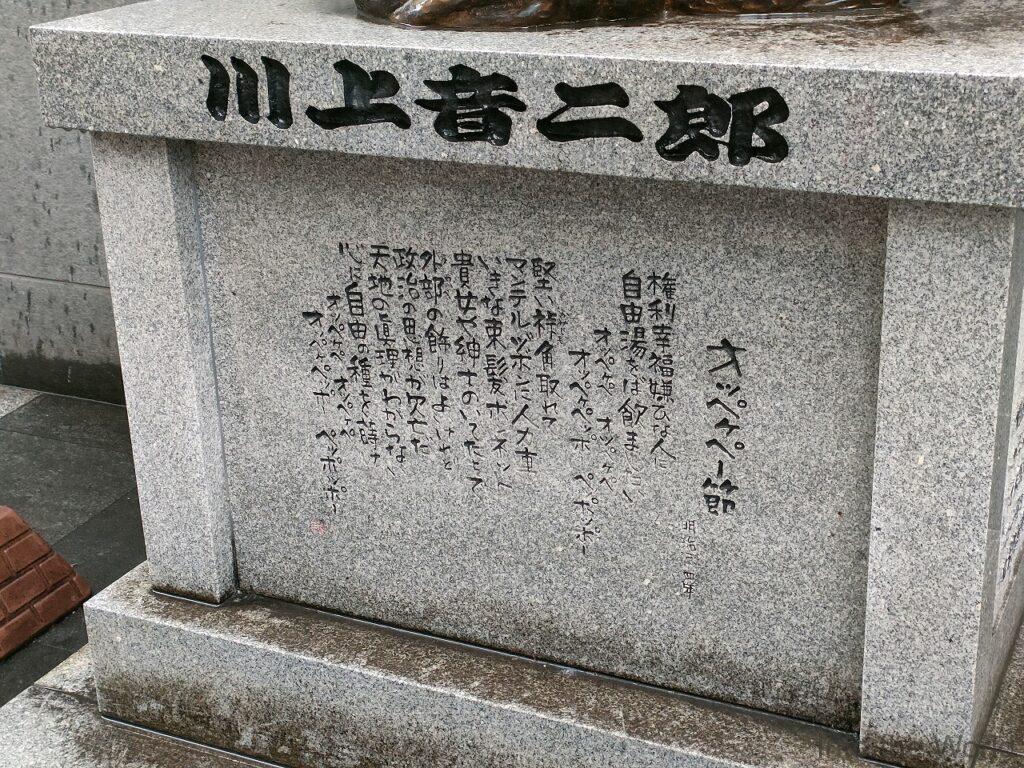 川上音二郎
オッペケペー節
権利幸福嫌ひな人に
自由湯をば飲ましたい
オッペケペ オッペケペ
オッペケペッポ ペッポッポー
堅い裃角取れて
マンテルヅボンに人力車
いきな束髪ボンネット
貴女や紳士のいでたちで
外部の飾りはよいけれど
政治の思想が欠乏だ
天地の眞理がわからない
心に自由の種を蒔け
オッペケペ オッペケペ
オッペケペッポ ペッポッポー